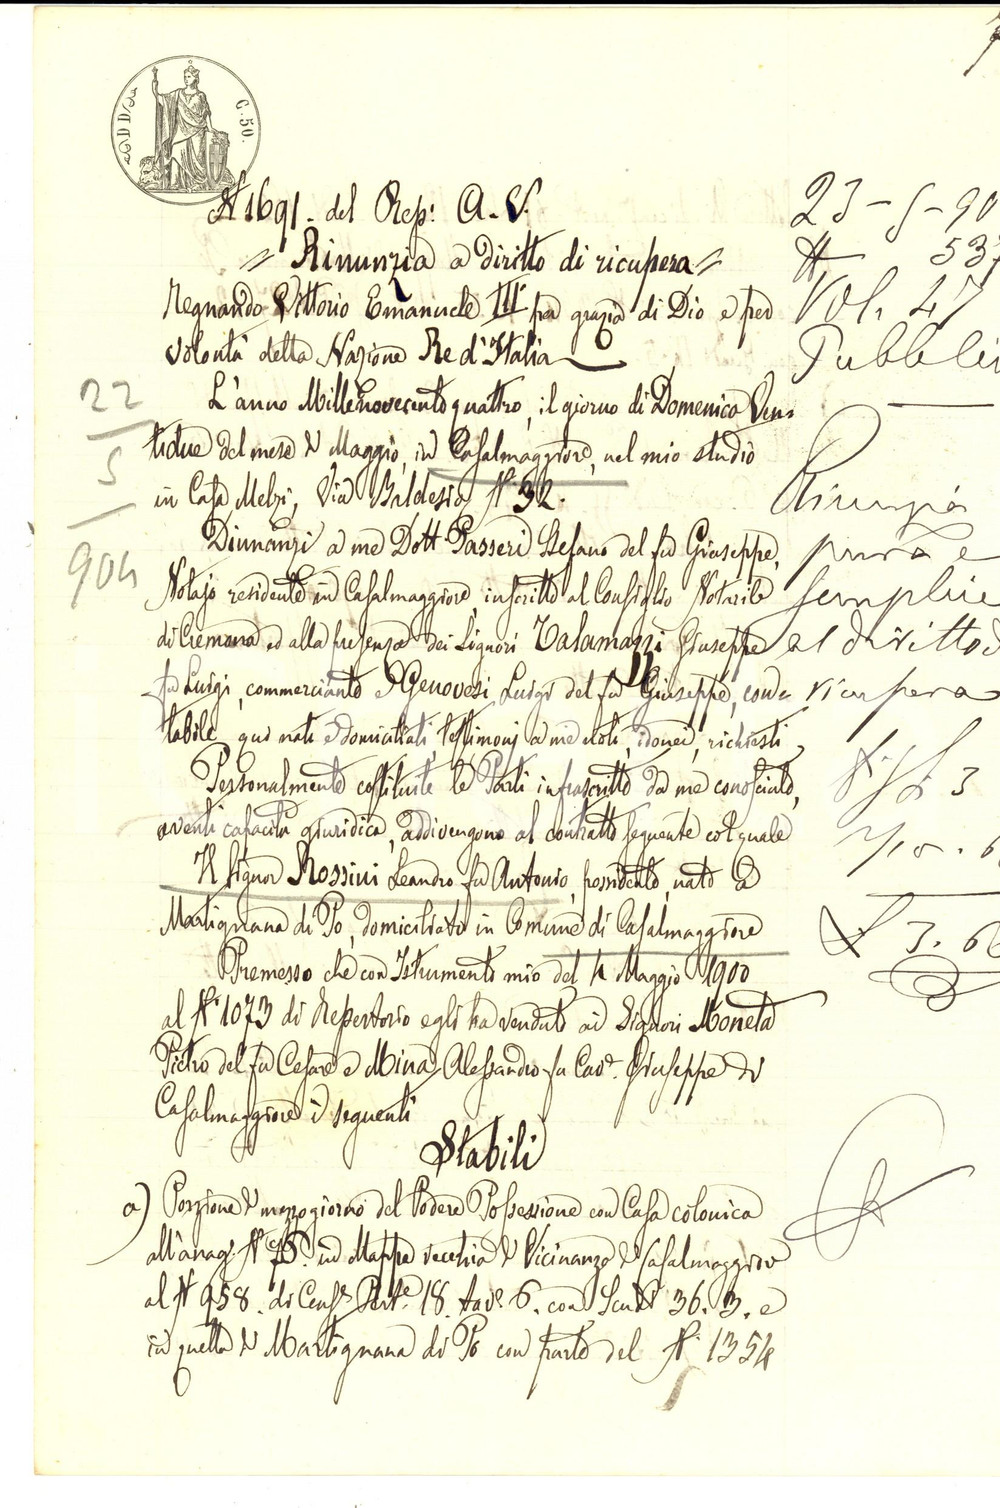 C. 50.
N 1691. del Rep: A. V.
Rinunzia a diritto di ricupera
Regnando Vittorio Emanuele III per grazia di Dio e per
volontà della Nazione Re d'Italia
L'anno Millenovecentoquattro, il giorno di Domenica Ven-
tidue del mese di Maggio, in Casalmaggiore, nel mio studio
in Casa Melzi, Via Baldesio N. 32.
Dinnanzi a me Dott Passeri Stefano del fu Giuseppe,
Notajo residente in Casalmaggiore, inscritto al Consiglio Notarile
di Cremona ed alla presenza dei Signori Talamazzi Giuseppe
fu Luigi, commerciante e Genovesi Luigi del fu Giuseppe, conta
tabile, qui nati e domiciliati, testimonj a me noti, idonei, richiesti
Personalmente costituite le Parti infrascritte da me conosciute,
aventi capacità giuridica, addivengono al contratto seguente col quale
Il Signor Rossini Leandro fu Antonio, possidente, nato a
Martignana di Po, domiciliato in Comune di Casalmaggiore
Premesso che con Istrumento mio del 4 Maggio 1900
al N. 1073 di Repertorio egli ha venduto ai Signori Moneta
Pietro del fu Cesare e Mina Alessandro fu Cav. Giuseppe di
Casalmaggiore i seguenti
Stabili
a) Porzione di mezzogiorno del Podere Possessione con Casa colonica
all'anag. N. in Mappa vecchia di Vicinanze di Casalmaggiore
al N 958. di Cens. Pert. 18. tav. 6. con Scudi 36. 3. e
in quella di Martignana di Po con parte del N. 1354
22
5
904
23-5-90
N 537
Vol. 47
Pubblici
Rinunzia
pura e
semplice
al diritto di
ricupera
3
1/10 . 6
£ 3.60